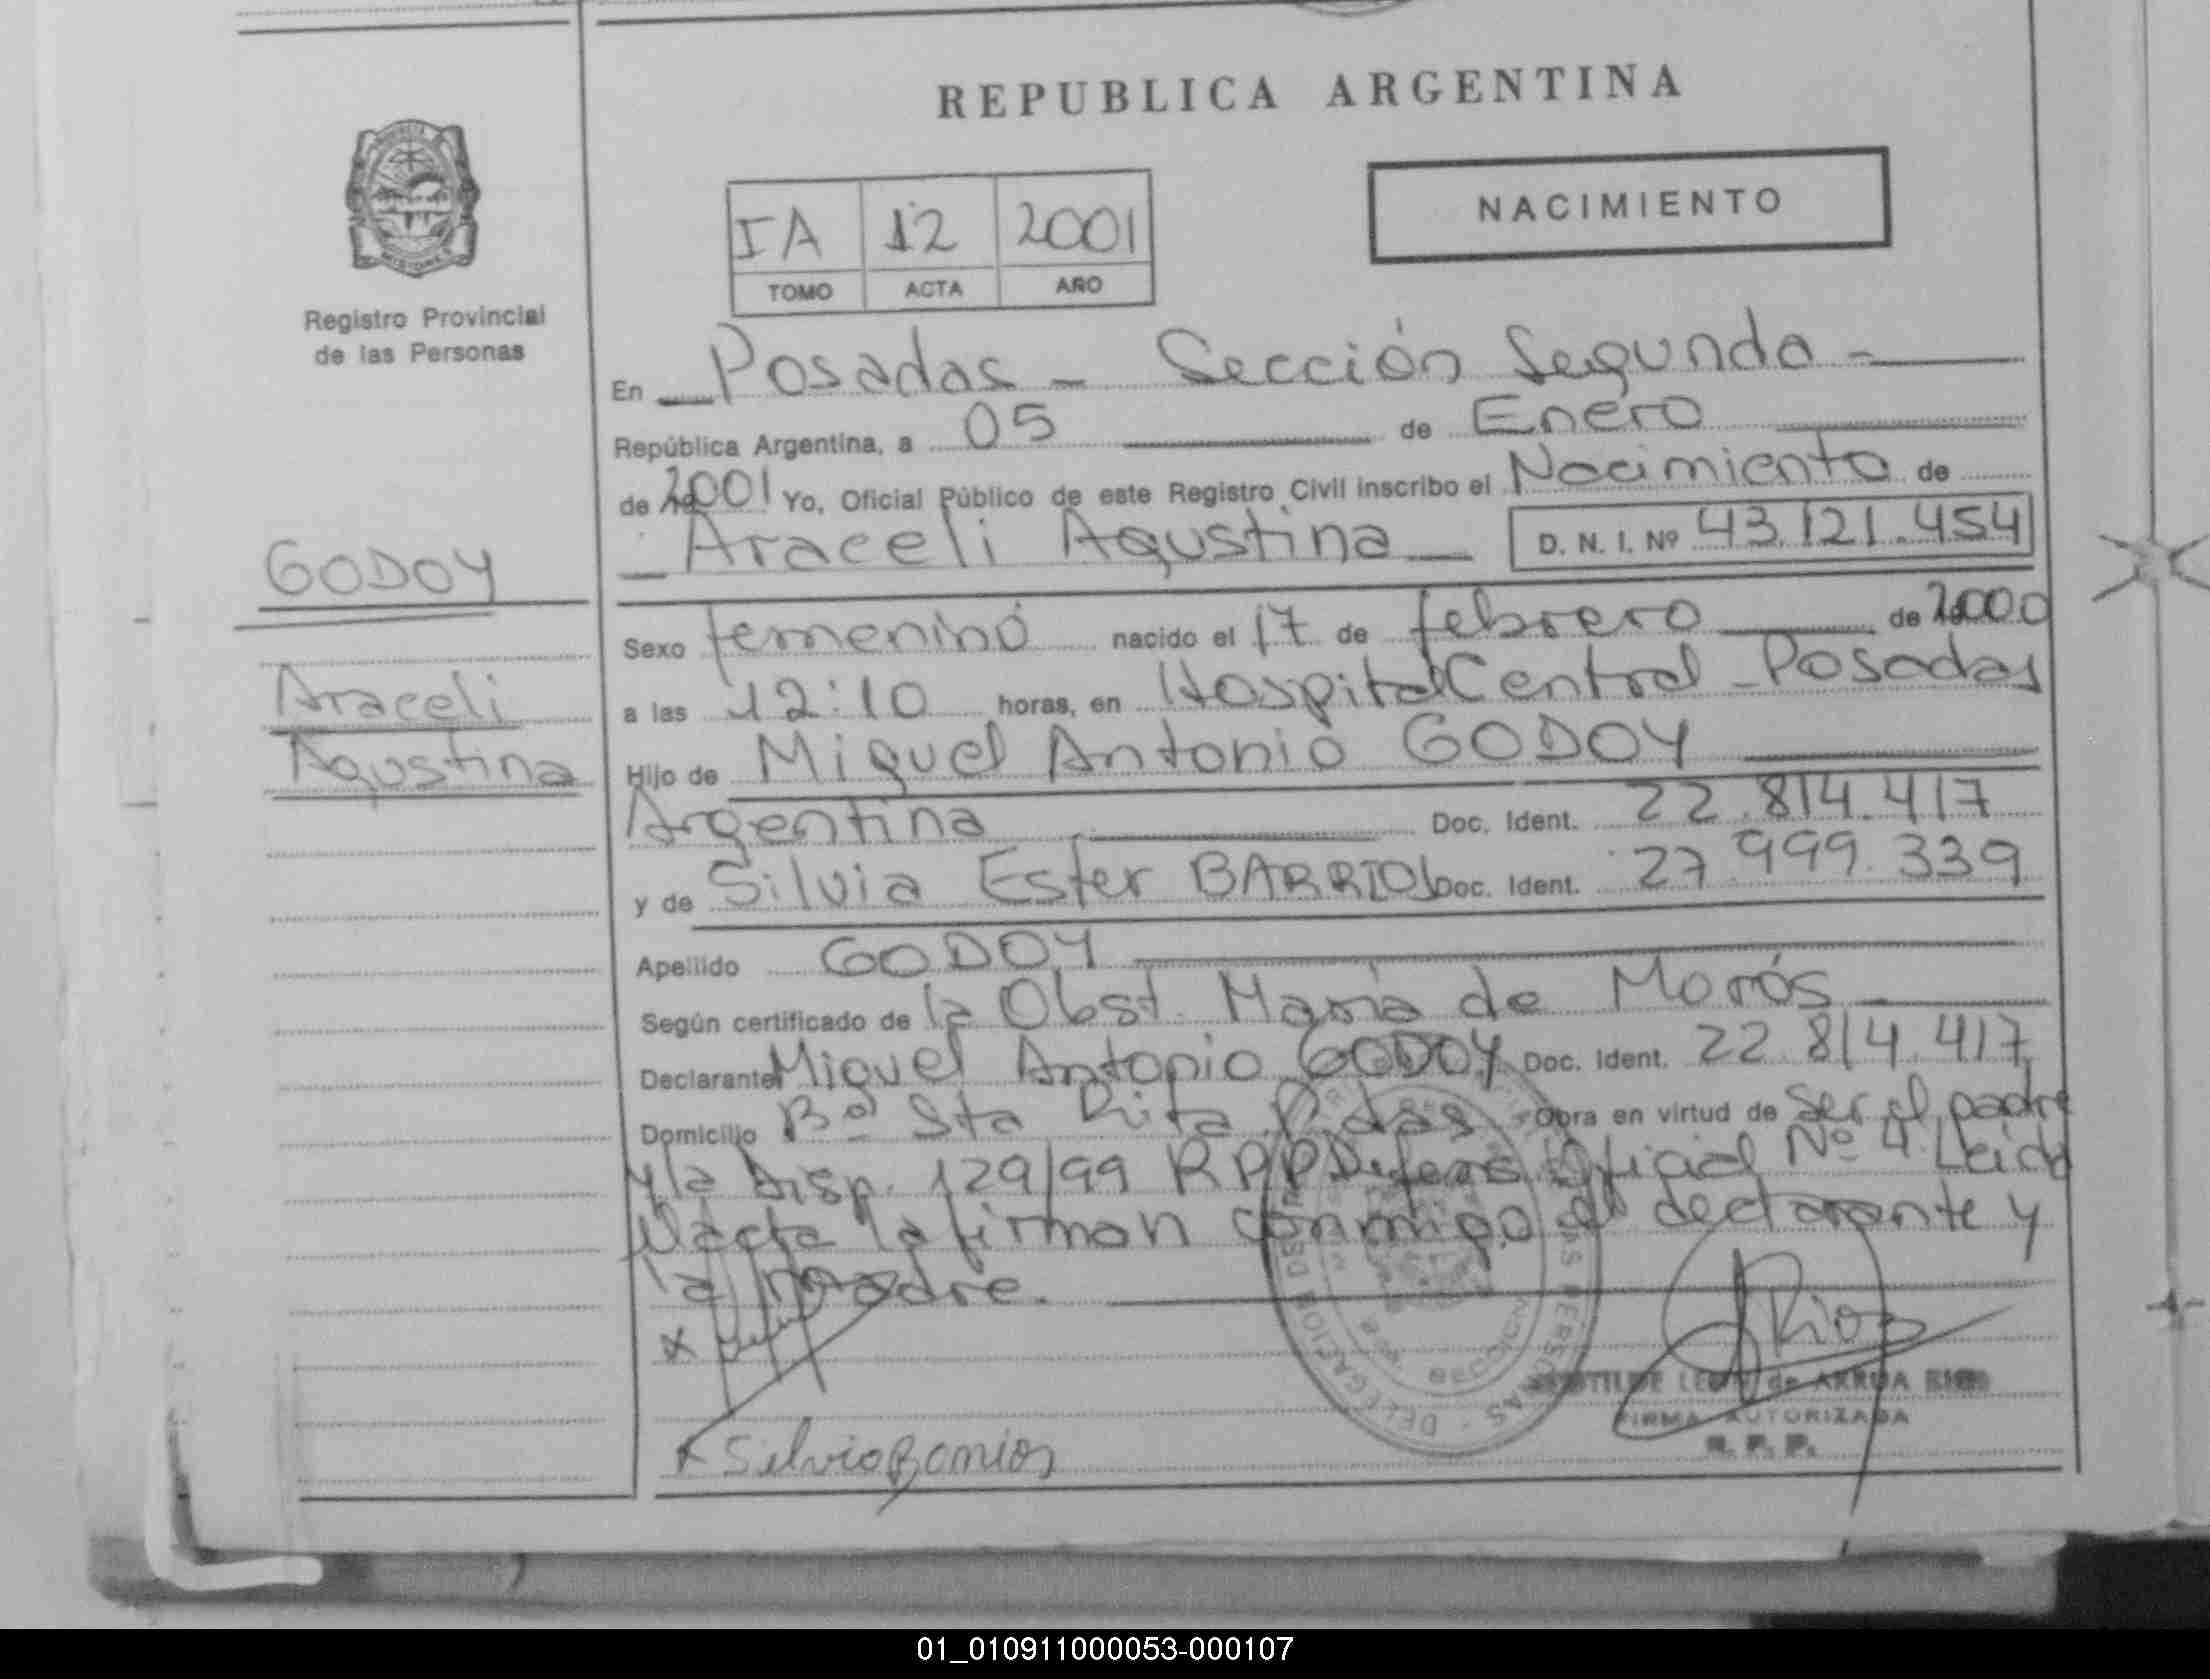 REPUBLICA ARGENTINA
NACIMIENTO
IA 12 2001
TOMO ACTA AÑO
MISIONES
Registro Provincial
de las Personas
En Posadas - Sección Segunda -
República Argentina, a 05 de Enero
de 2001 Yo, Oficial Público de este Registro Civil inscribo el Nacimiento de
Araceli Agustina D. N. I. Nº 43.121.454
GODOY
Araceli
Agustina
Sexo femenino nacido el 17 de febrero de 2000
a las 12:10 horas, en Hospital Central - Posadas
Hijo de Miguel Antonio GODOY
Argentina Doc. Ident. 22.814.417
y de Silvia Ester BARRIOS Doc. Ident. 27.999.339
Apellido GODOY
Según certificado de la Obst. María de Morós
Declarante Miguel Antonio GODOY Doc. Ident. 22.814.417
Domicilio Bº Sta Rita Pdas Obra en virtud de ser el padre
y la Disp. 129/99 RPP Defens. Oficial Nº 4. Leida
el acta la firman conmigo el declarante y
la madre.
x
x Silvia Barrios
Rios
LEON de ARRUA RIOS
FIRMA AUTORIZADA
R. P. P.
01_010911000053-000107